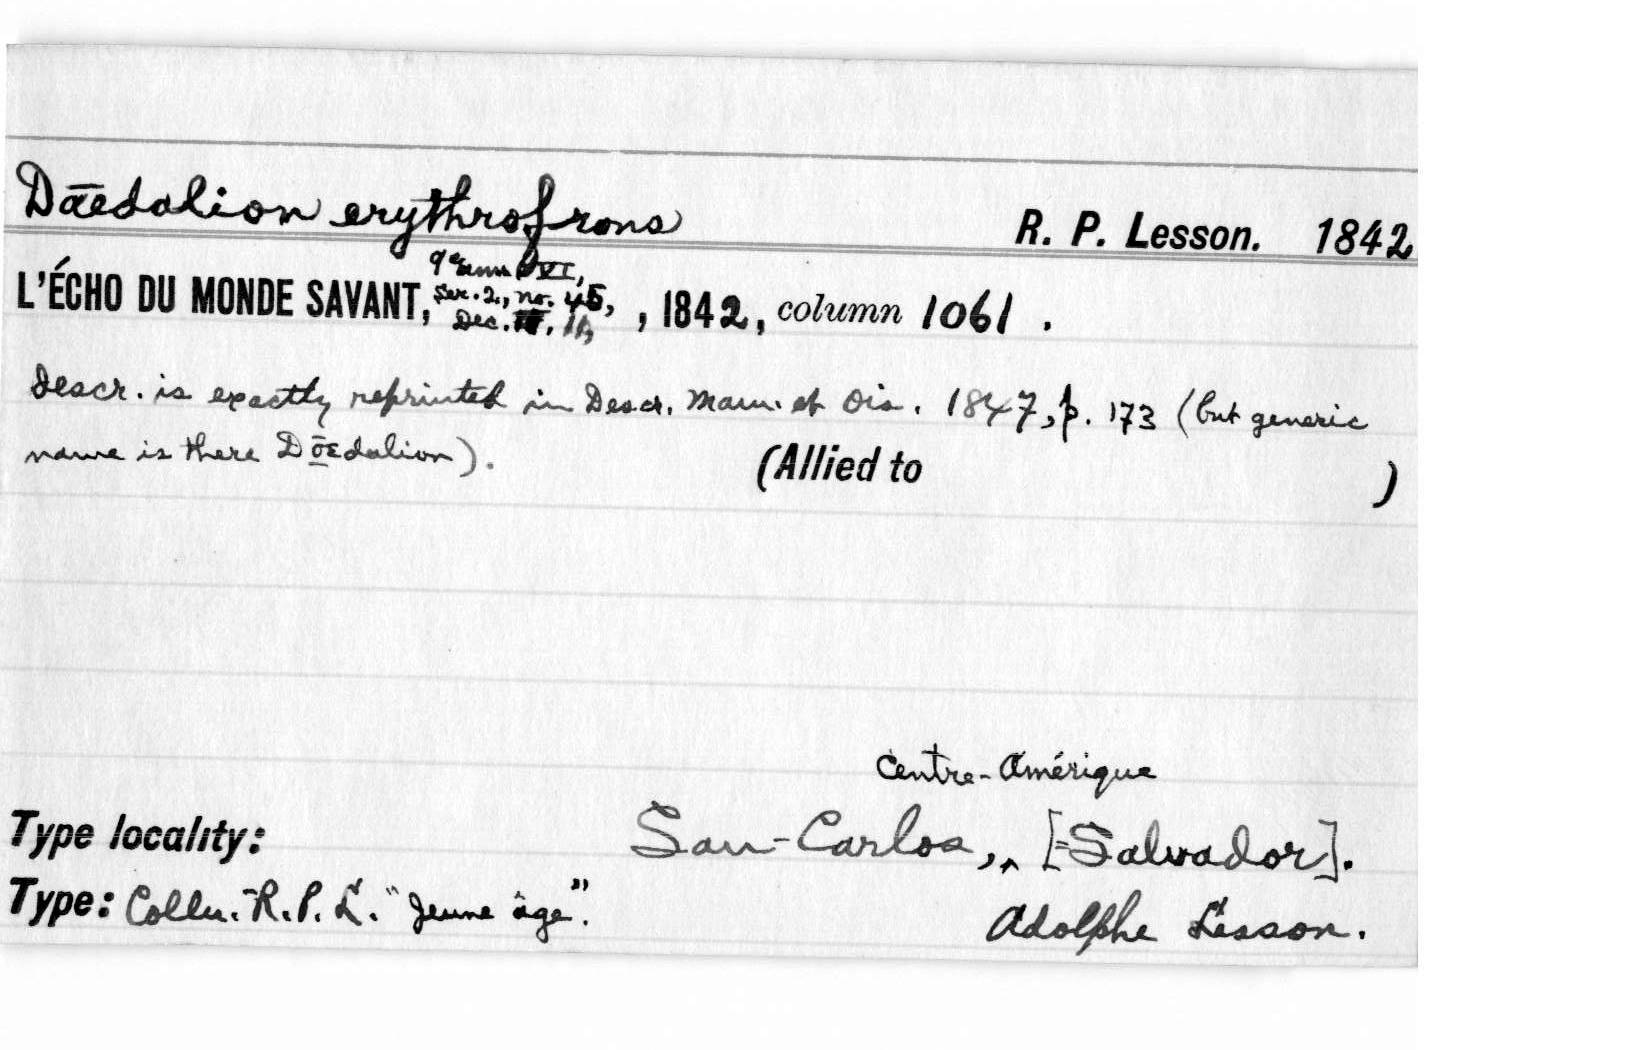 Daedalion erythrofrons R. P. Lesson. 1842
9e
Ser. 2., no. 45,
L'ÉCHO DU MONDE SAVANT, , 1842, column 1061 .
Dec.
Descr. is exactly reprinted in Descr. Mam. et Ois. 1847, p. 173 (but generic
name is there Dœdalion).
(Allied to )
Centre-Amérique
Type locality: San-Carlos, ‸ [=Salvador].
Type: Colln. R. P. L. "Jeune âge". Adolphe Lesson.